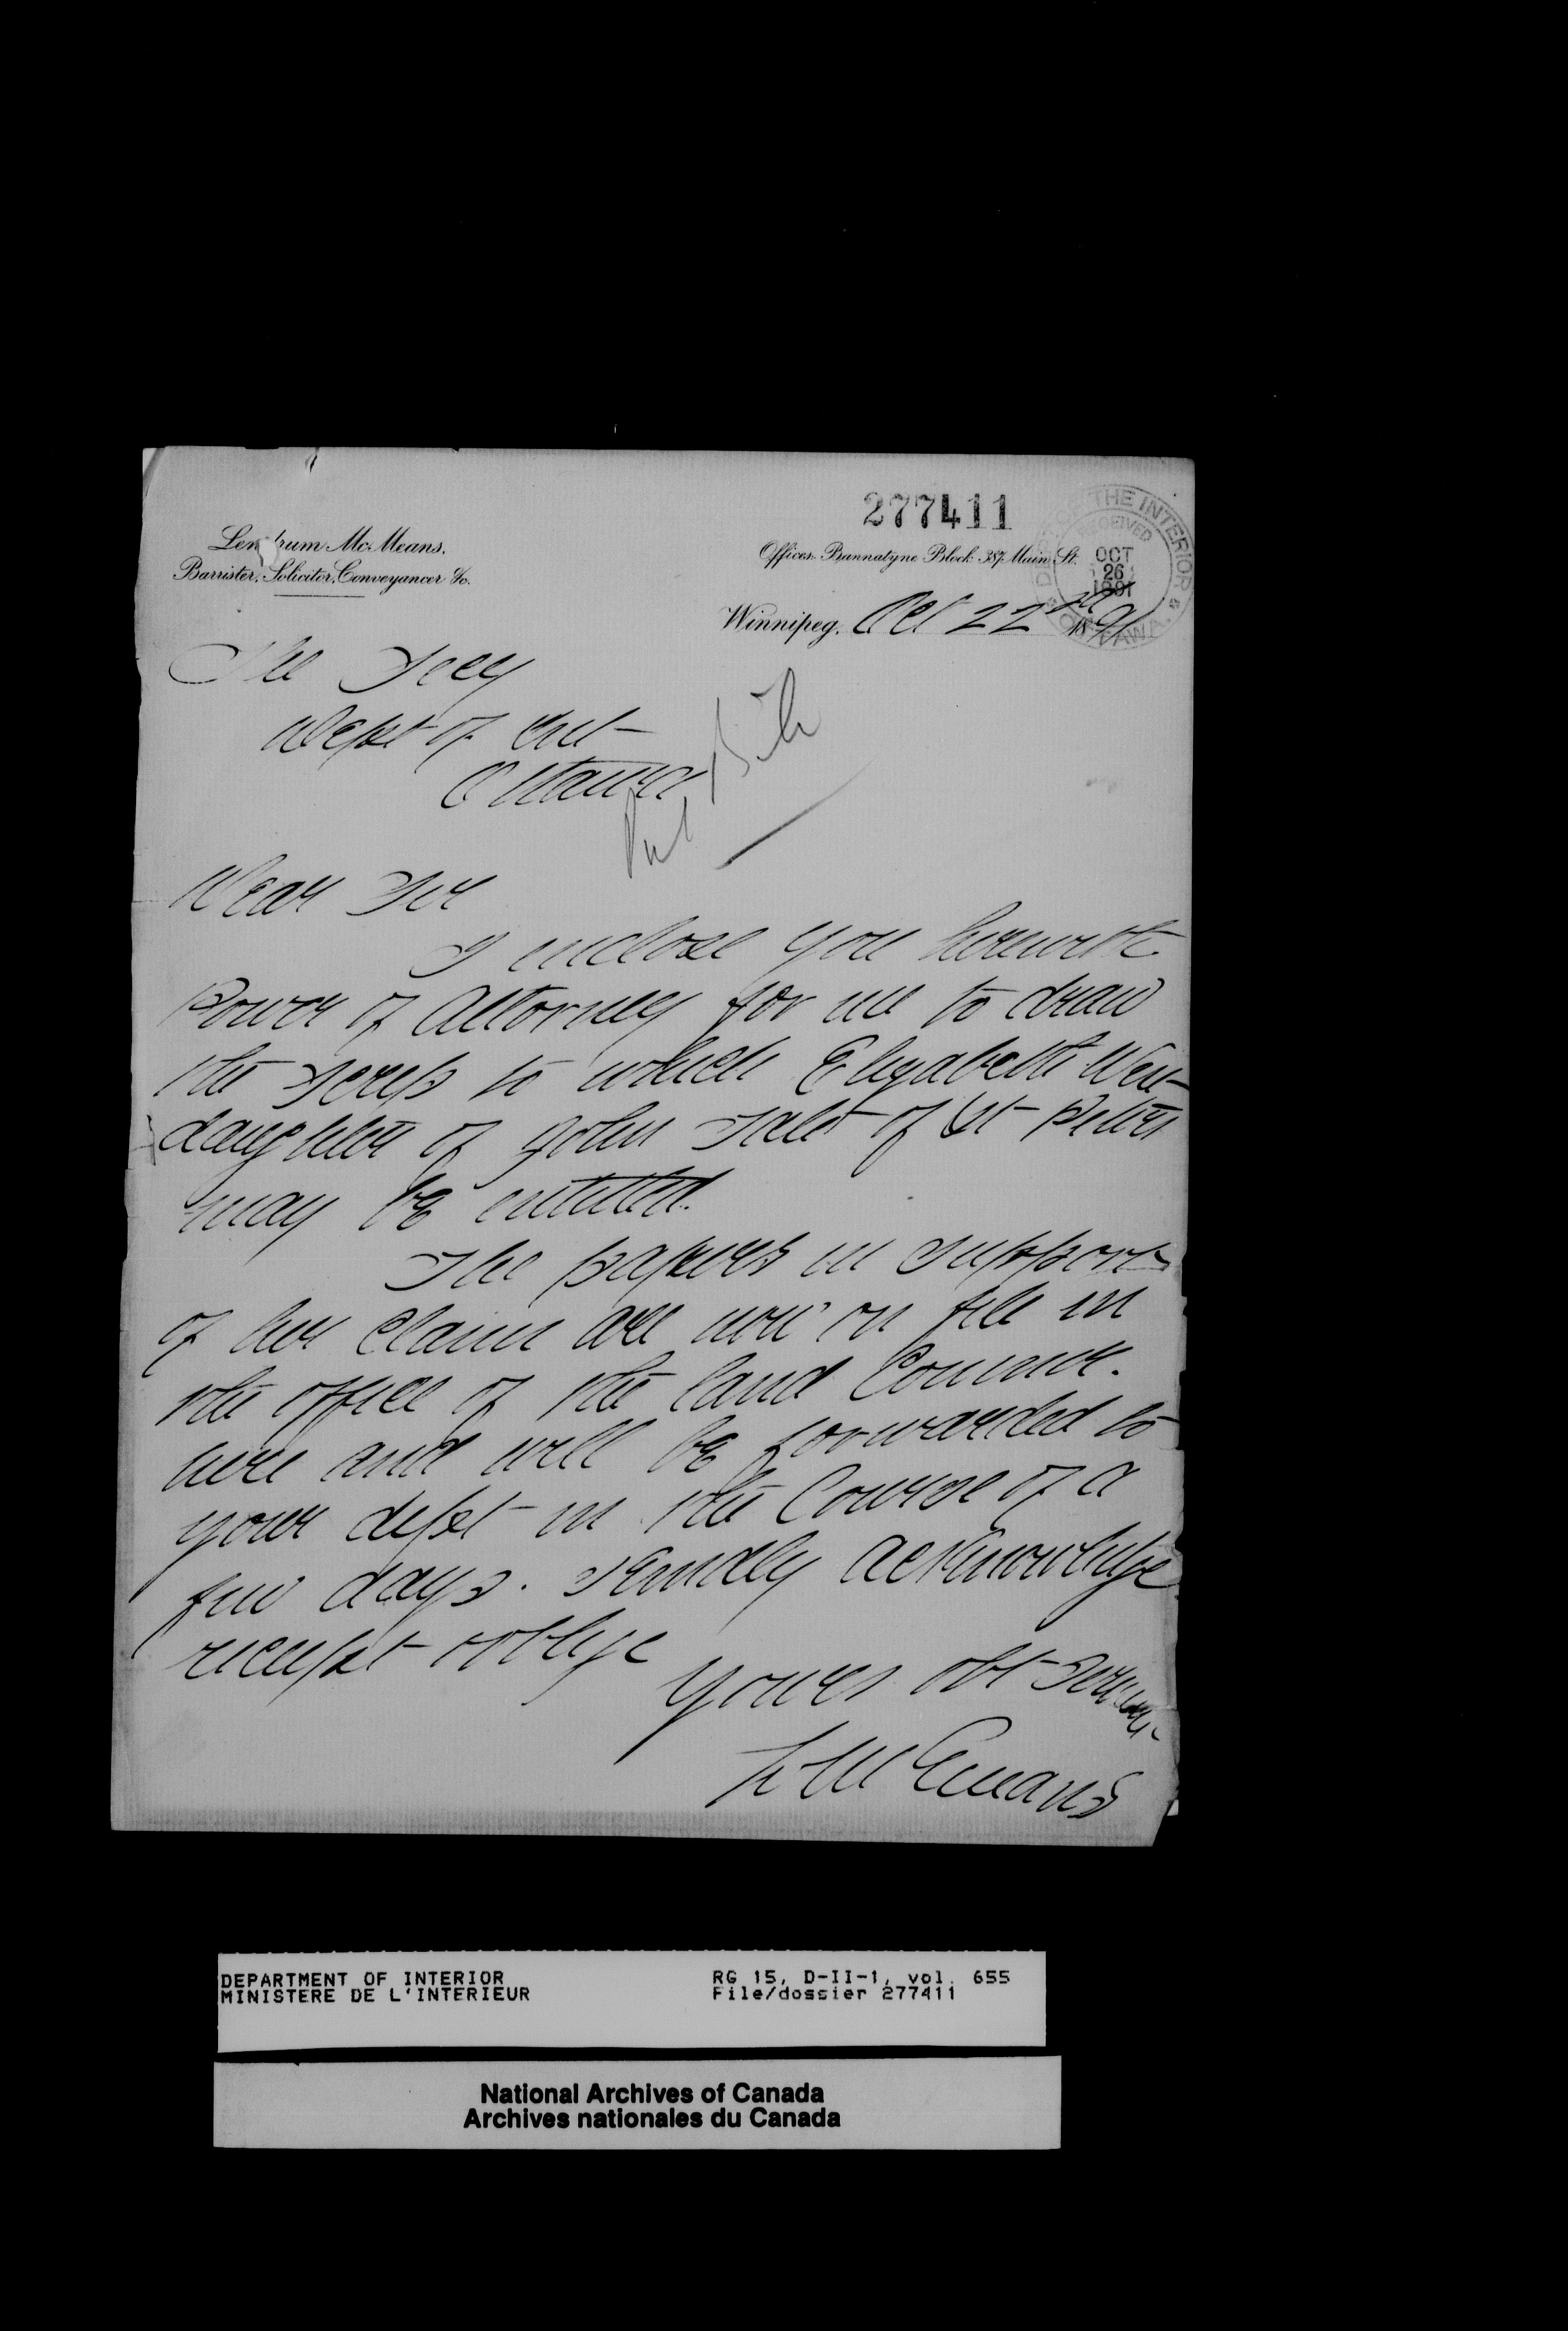 277411
Lendrum McMeans.
Barrister, Solicitor, Conveyancer &c.
Offices. Bannatyne Block 387 Main St.
DEPT OF THE INTERIOR
RECEIVED
OCT
26
1891
OTTAWA
Winnipeg, Oct 22nd 1891
The Secy
Dept of Int
Ottawa
Dear Sir
I enclose you herewith
Power of Attorney for me to draw
the scrip to which Elizabeth
daughter of John of St Peters
may be entitled.
The papers in support
of her claim are now on file in
the office of the land Commr.
here and will be forwarded to
your dept in the Course of a
few days. Kindly acknowledge
receipt & oblige
Yours obt servant
L McMeans
DEPARTMENT OF INTERIOR
MINISTERE DE L'INTERIEUR
RG 15, D-II-1, vol. 655
File/dossier 277411
National Archives of Canada
Archives nationales du Canada